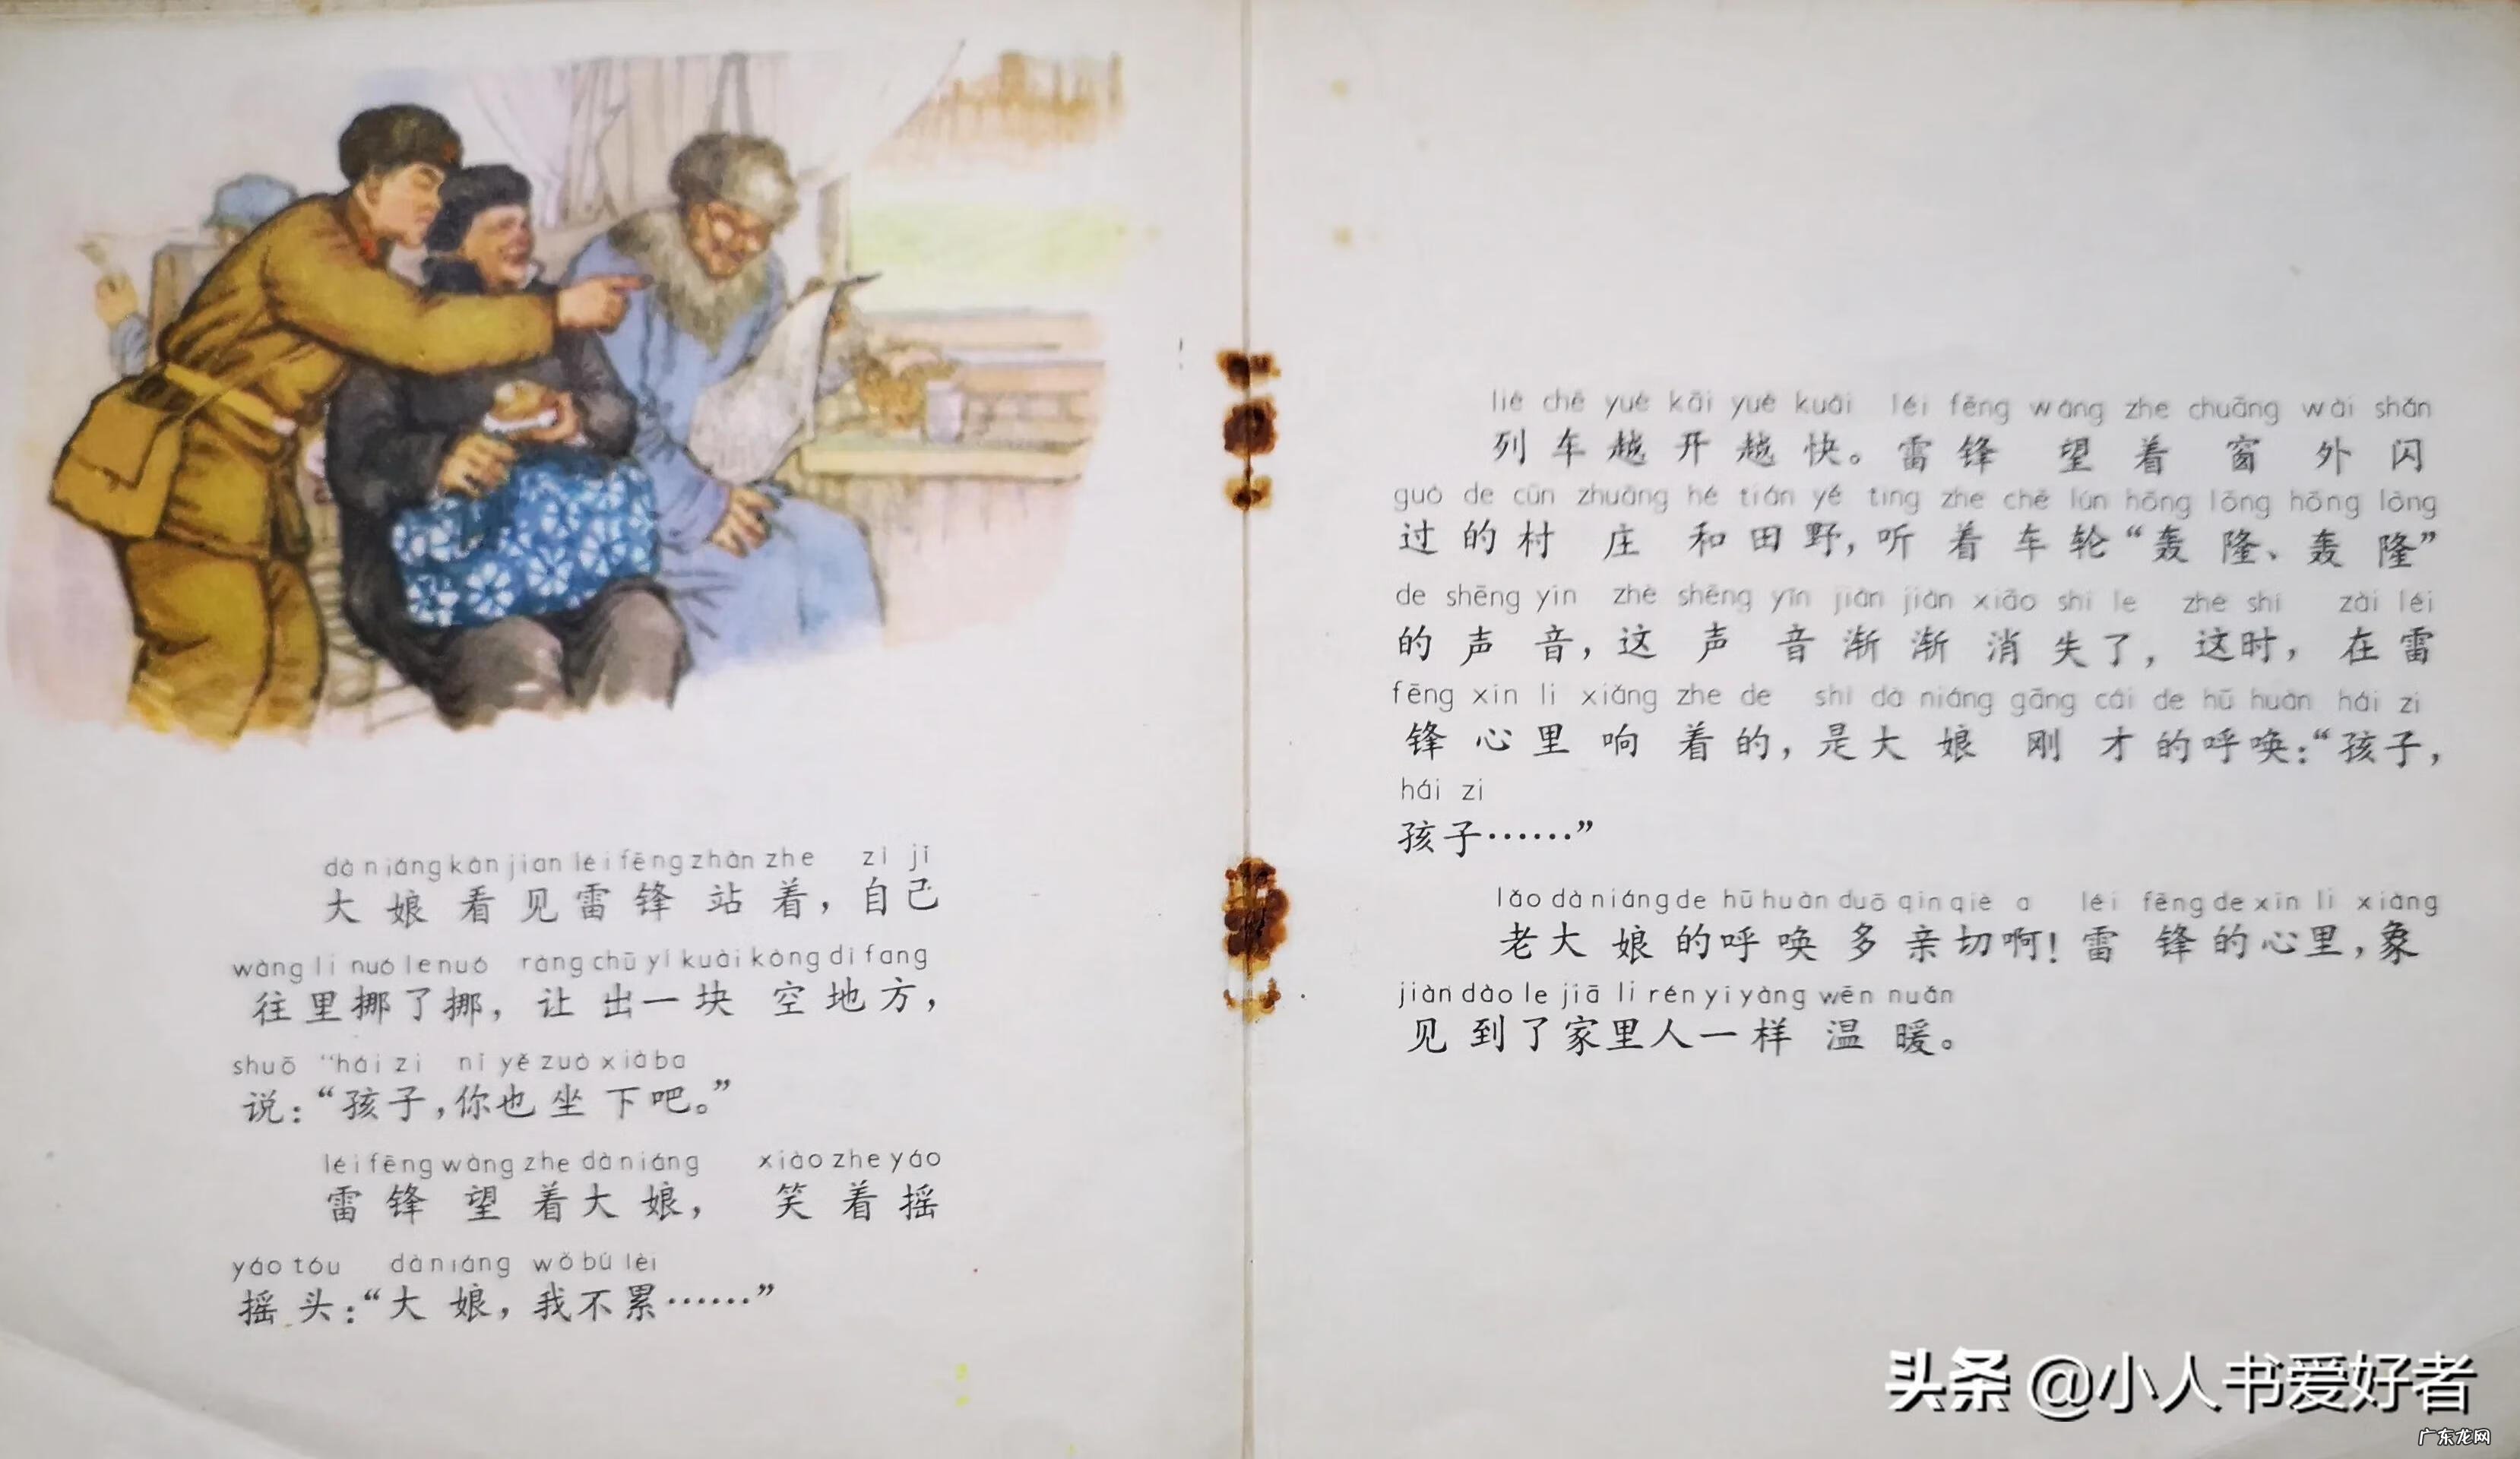 dà niáng kàn jiàn léi fēng zhàn zhe zì jǐ
大娘看见雷锋站着，自己
wàng lǐ nuó le nuó ràng chū yí kuài kòng dì fang
往里挪了挪，让出一块空地方，
shuō “hái zi nǐ yě zuò xià ba
说：“孩子，你也坐下吧。”
léi fēng wàng zhe dà niáng xiào zhe yáo
雷锋望着大娘，笑着摇
yáo tóu dà niáng wǒ bú lèi
摇头：“大娘，我不累……”
liè chē yuè kāi yuè kuài léi fēng wàng zhe chuāng wài shǎn
列车越开越快。雷锋望着窗外闪
guò de cūn zhuāng hé tián yě tīng zhe chē lún hōng lōng hōng lōng
过的村庄和田野，听着车轮“轰隆、轰隆”
de shēng yīn zhè shēng yīn jiàn jiàn xiāo shī le zhè shí zài léi
的声音，这声音渐渐消失了，这时，在雷
fēng xīn lǐ xiǎng zhe de shì dà niáng gāng cái de hū huàn hái zi
锋心里响着的，是大娘刚才的呼唤：“孩子，
hái zi
孩子……”
lǎo dà niáng de hū huàn duō qīn qiè a léi fēng de xīn lǐ xiàng
老大娘的呼唤多亲切啊！雷锋的心里，象
jiàn dào le jiā lǐ rén yí yàng wēn nuǎn
见到了家里人一样温暖。
头条 @小人书爱好者
广东龙网